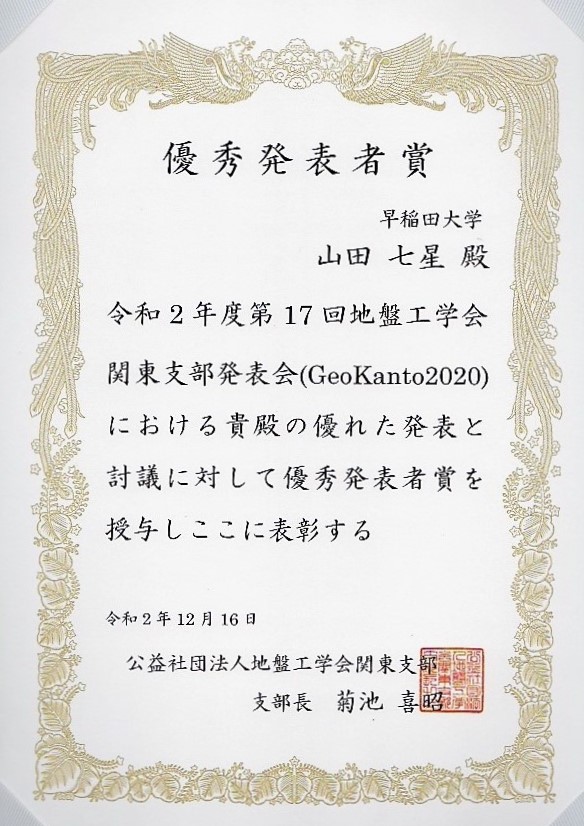 優秀発表者賞
早稲田大学
山田 七星 殿
令和2年度第17回地盤工学会
関東支部発表会(GeoKanto2020)
における貴殿の優れた発表と
討議に対して優秀発表者賞を
授与しここに表彰する
令和2年12月16日
公益社団法人地盤工学会関東支部
支部長 菊池 喜昭